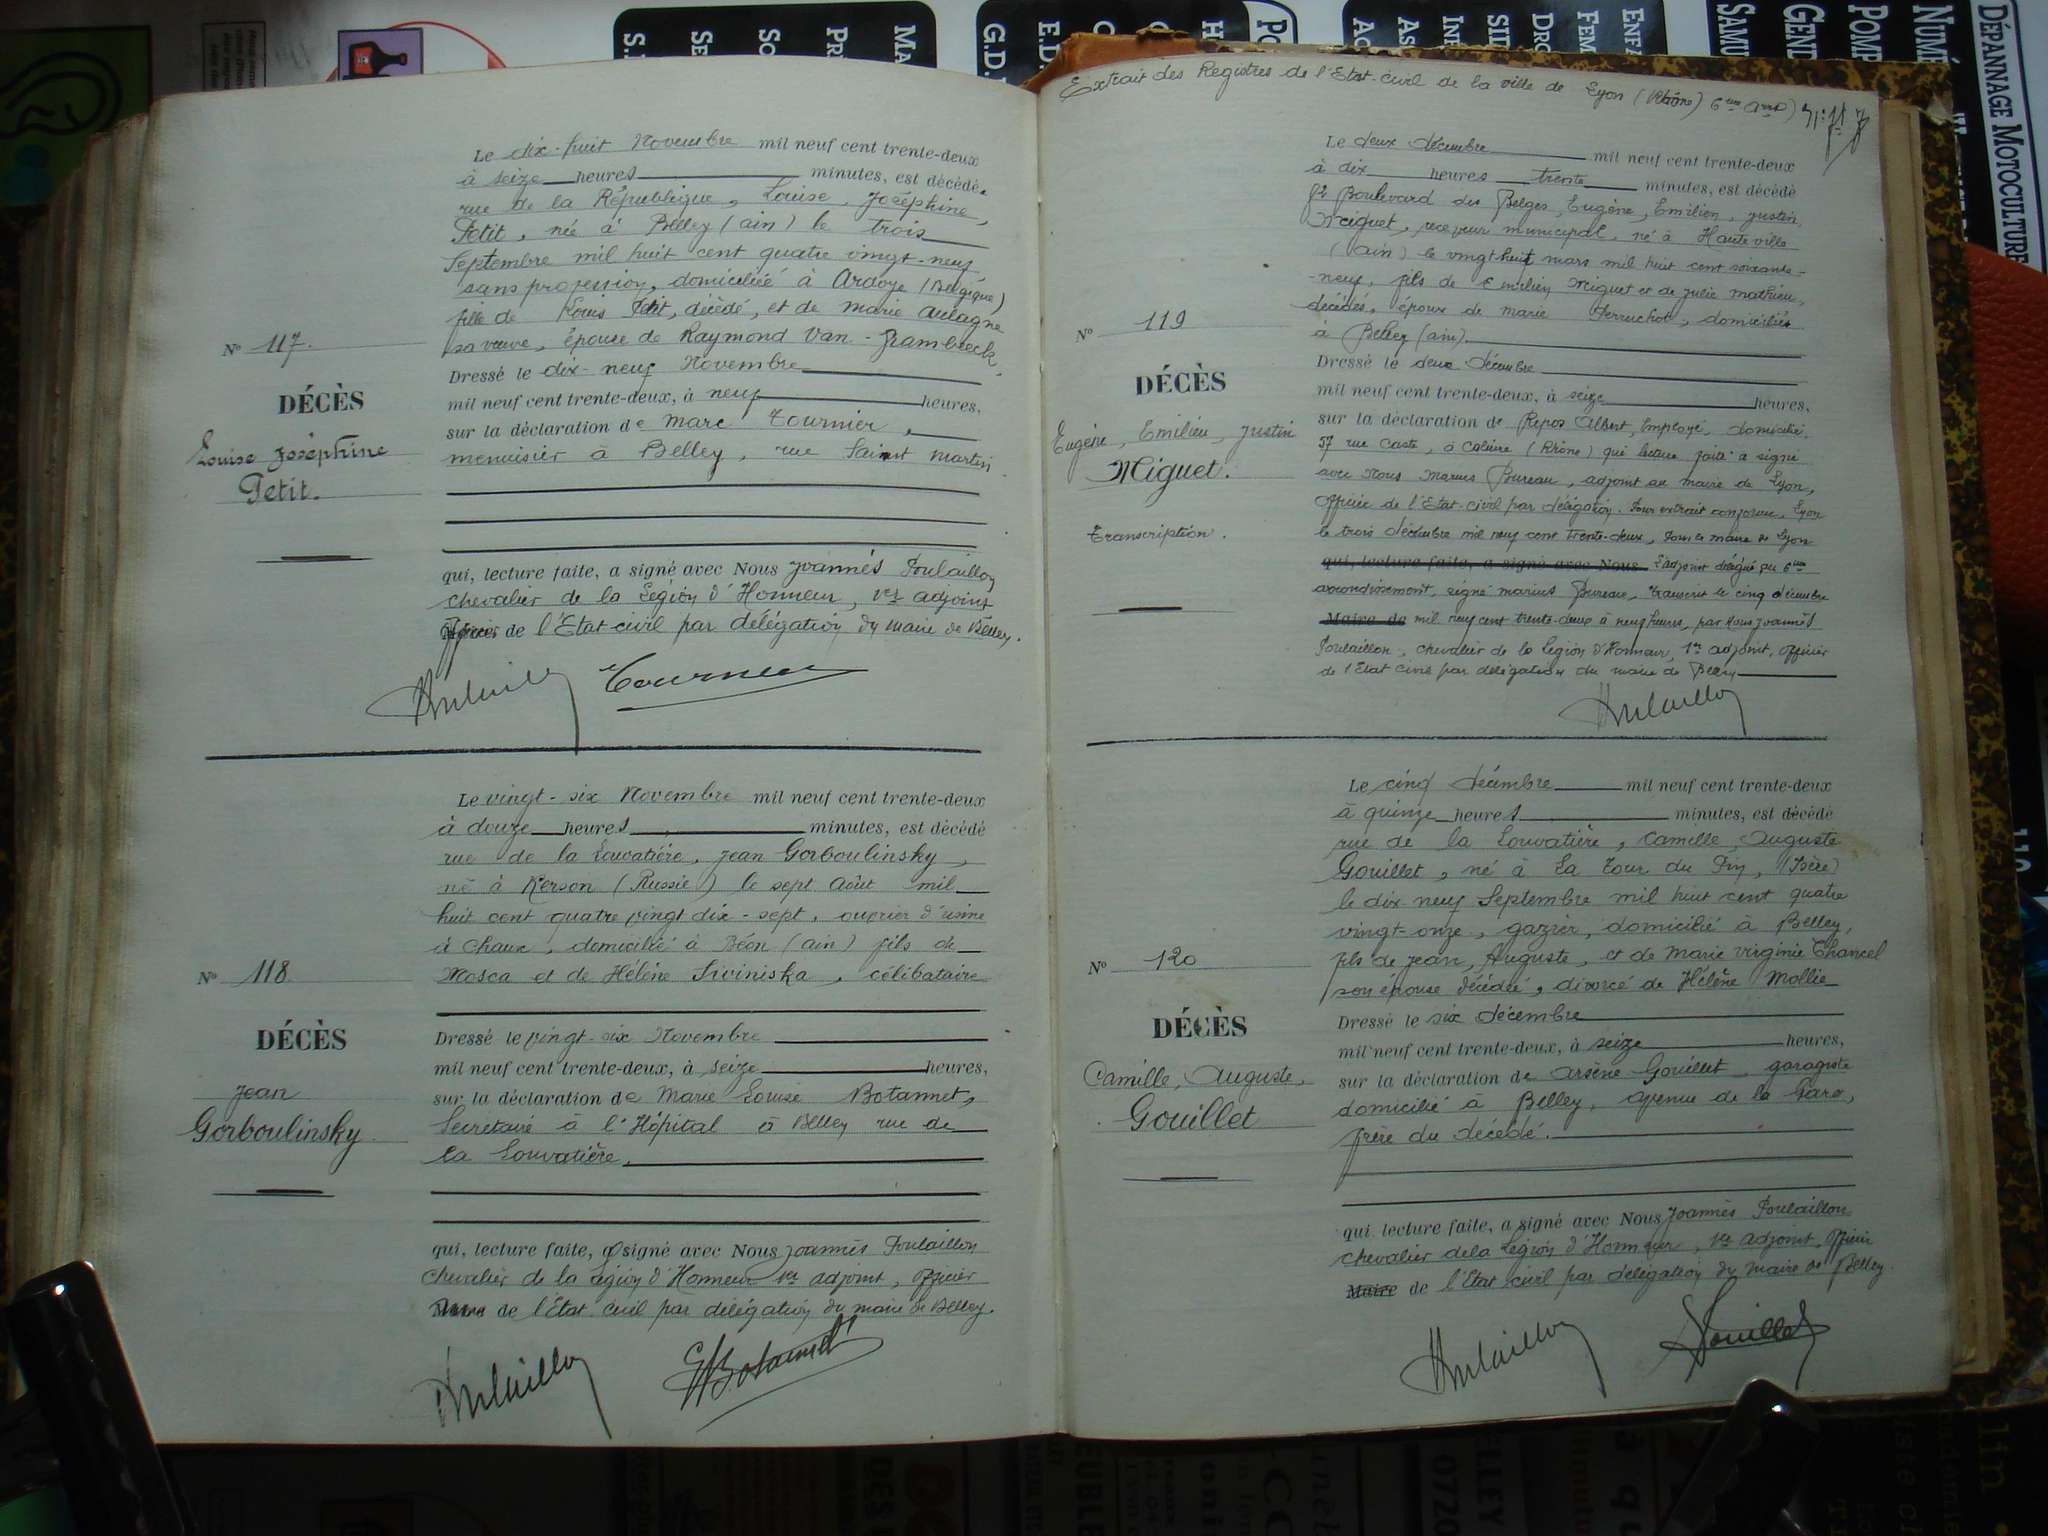 Le dix-huit Novembre mil neuf cent trente-deux
à seize heures minutes, est décédée
rue de la République, Louise, Joséphine,
Petit, née à Belley (ain) le trois
Septembre mil huit cent quatre vingt-neuf
sans profession, domiciliée à Ardoye (Belgique)
fille de Louis Petit, décédé, et de marie aulagne
sa veuve, épouse de Raymond Van-
Nº 117.
DÉCÈS
Louise Joséphine
Petit.
Dressé le dix-neuf Novembre
mil neuf cent trente-deux, à neuf heures,
sur la déclaration de Marc Tournier,
menuisier à Belley, rue Saint martin
qui, lecture faite, a signé avec Nous Joannès Poulaillon
chevalier de la Légion d'Honneur, 1er adjoint
officier de l'Etat-civil par délégation du maire de Belley.
Poulaillon Tournier
Le vingt-six Novembre mil neuf cent trente-deux
à douze heures minutes, est décédé
rue de la Louvatière, Jean Gorboulinsky,
né à Kerson (Russie) le sept Août mil
huit cent quatre vingt dix-sept, ouvrier d'usine
à chaux, domicilié à Béon (ain) fils de
Mosca et de Hélène Siviniska, célibataire
Nº 118
DÉCÈS
Jean
Gorboulinsky
Dressé le vingt-six Novembre
mil neuf cent trente-deux, à seize heures,
sur la déclaration de Marie Louise Botannet,
Secrétaire à l'Hôpital à Belley rue de
la Louvatière,
qui, lecture faite, a signé avec Nous Joannès Poulaillon
chevalier de la Légion d'Honneur 1er adjoint, officier
Maire de l'Etat civil par délégation du maire de Belley.
Poulaillon Botannet
Extrait des Registres de l'Etat-civil de la ville de Lyon (Rhône) 6ème arrd)
Le deux décembre mil neuf cent trente-deux
à dix heures trente minutes, est décédé
Boulevard des Belges, Eugène, Emilien, Justin,
Miguet, receveur municipal, né à Hauteville
(ain) le vingt huit mars mil huit cent soixante-
-neuf, fils de Emilien Miguet et de Julie Mathieu,
décédés, époux de marie Perruchot, domiciliés
à Belley (ain).
Nº 119
DÉCÈS
Eugène, Emilien, Justin
Miguet.
Transcription.
Dressé le deux décembre
mil neuf cent trente-deux, à seize heures,
sur la déclaration de Repos Albert, Employé, domicilié,
57 rue Coste, à Caluire (Rhône) qui lecture faite a signé
avec Nous Marius Bureau, adjoint au maire de Lyon,
officier de l'Etat-civil par délégation. Pour extrait conforme, Lyon
le trois décembre mil neuf cent trente-deux, Pour le maire de Lyon
qui, lecture faite, a signé avec Nous l'adjoint délégué du 6ème
arrondissement, signé marius Bureau, Transcrit le cinq décembre
Maire de mil neuf cent trente-deux à neuf heures, par nous Joannès
Poulaillon, chevalier de la Légion d'Honneur, 1er adjoint, officier
de l'Etat civil par délégation du maire de Belley
Poulaillon
Le cinq décembre mil neuf cent trente-deux
à quinze heures minutes, est décédé
rue de la Louvatière, Camille, Auguste
Gouillet, né à La Tour du Pin, (Isère)
le dix neuf Septembre mil huit cent quatre
vingt-onze, gazier, domicilié à Belley,
fils de Jean, Auguste, et de Marie virginie Chancel
son épouse décédée, divorcé de Hélène Mollie
Nº 120
DÉCÈS
Camille, Auguste,
Gouillet
Dressé le six décembre
mil neuf cent trente-deux, à seize heures,
sur la déclaration de Arsène Gouillet garagiste
domicilié à Belley, avenue de la Gare,
frère du décédé.
qui, lecture faite, a signé avec Nous Joannès Poulaillon
chevalier de la Légion d'Honneur, 1er adjoint, officier
Maire de l'Etat civil par délégation du maire de Belley.
Poulaillon Gouillet
DÉPANNAGE MOTOCULTURE
POMP
GEND
SAMU